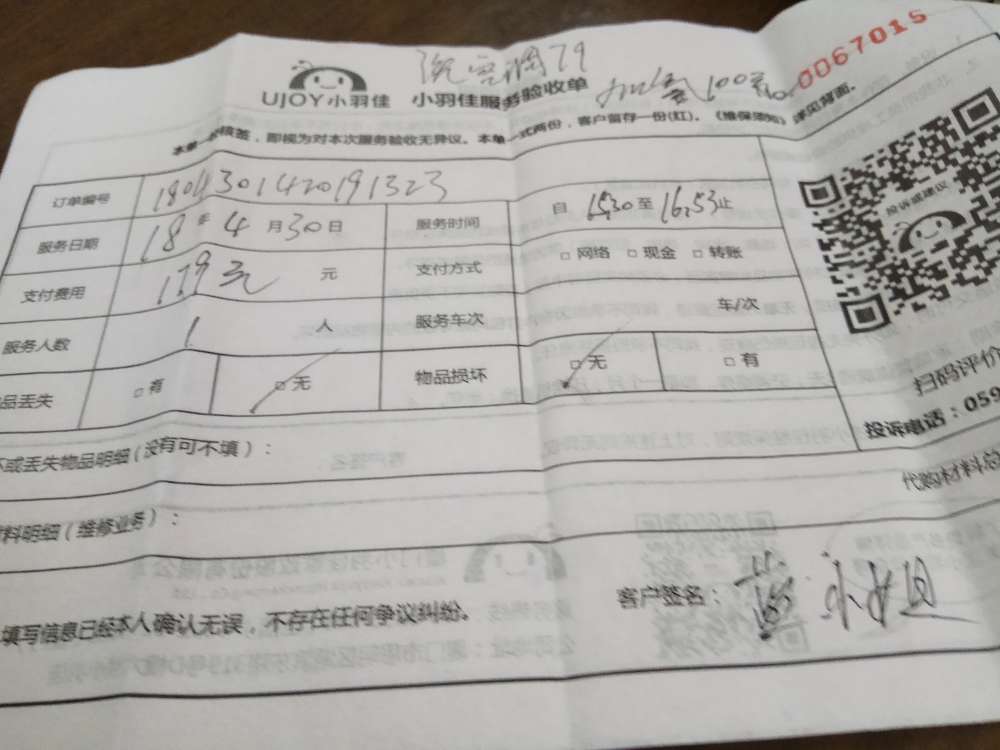 洗空调79
UJOY小羽佳 小羽佳服务验收单 加氟100元 0067015
核签，即视为对本次服务验收无异议。本单一式两份，客户留存一份(红)。《维保须知》详见背面。
订单编号 180430142019 1323
服务日期 18年4月30日 服务时间 自15:30至16:53止
支付费用 179元 元 支付方式 □网络 □现金 □转账
服务人数 1 人 服务车次 车/次
品丢失 □有 □无 物品损坏 □无 □有
投诉或建议
扫码评价
投诉电话：059
坏或丢失物品明细(没有可不填)：
代购材料总
料明细(维修业务)：
填写信息已经本人确认无误，不存在任何争议纠纷。
客户签名： 小姐